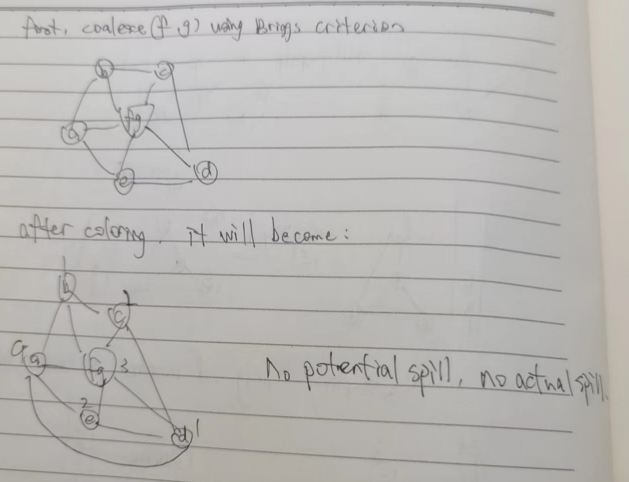 first, coalesce (f g) using Briggs criterion
b c
a fg
e d
after coloring, it will become:
1
b
2
c
a fg 3
2
e
d 1
No potential spill, no actual spill.